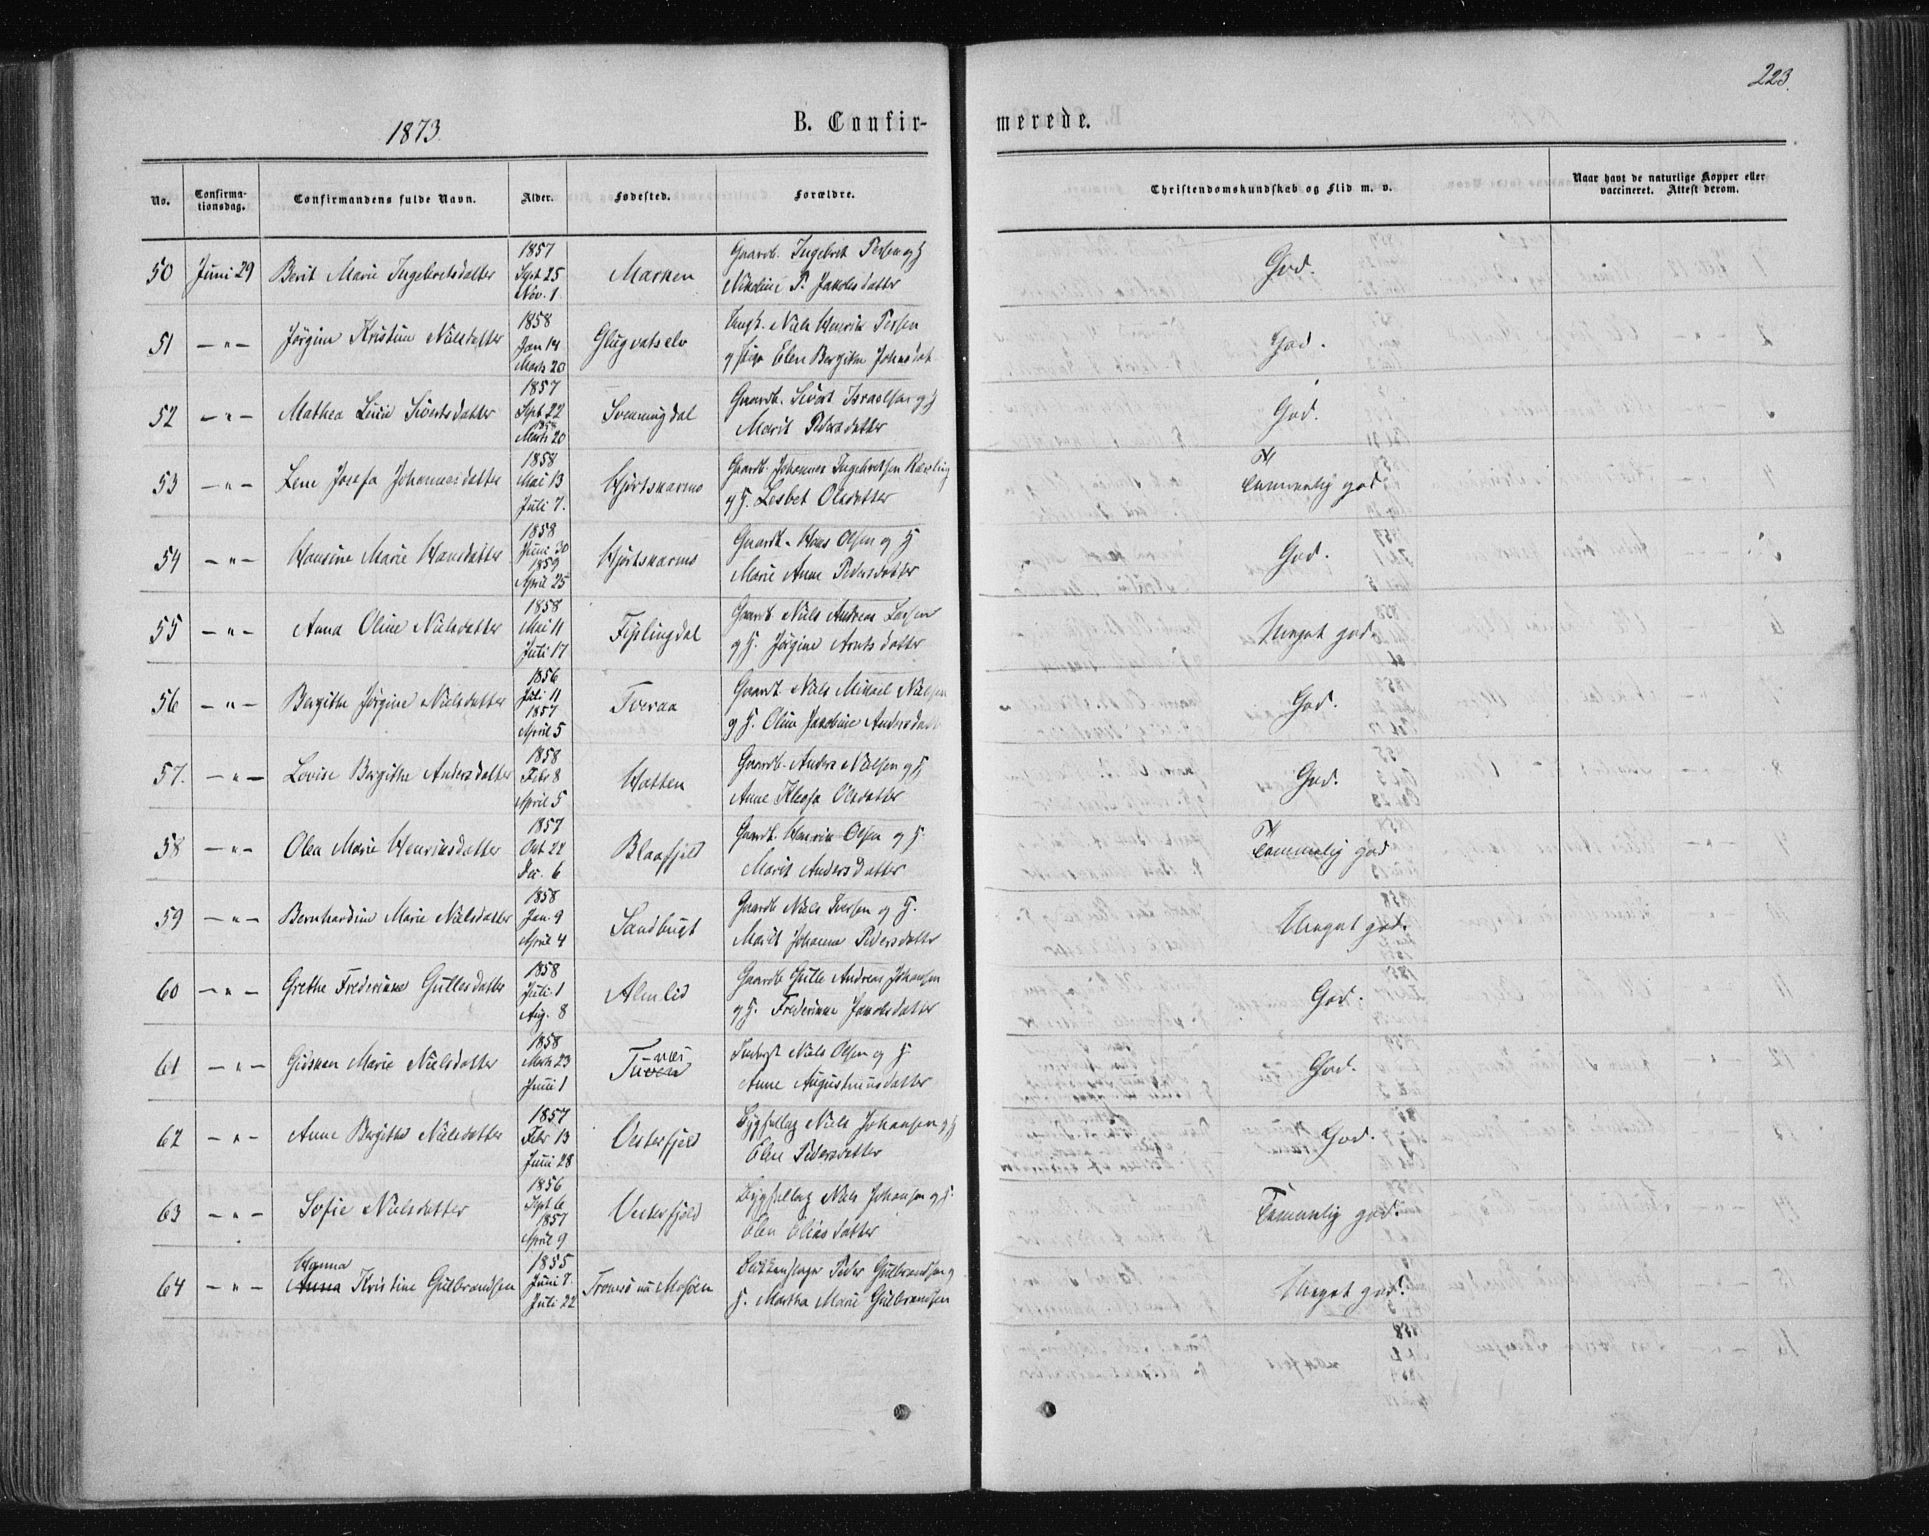 223.
1873.
B. Confir-
merede.
No.
Confirma-
tionsdag.
Confirmandens fulde Navn.
Alder.
Fødested.
Forældre.
Christendomskundskab og Flid m. v.
Naar havt de naturlige Kopper eller
vaccineret. Attest derom.
50 Juni 29 Berit Marie Ingebretsdatter 1857 Sept. 25 Nov. 1 Marken Gaardb. Ingebret Persen og H
Nikoline P. Jakobsdatter God.
51 — " — Jørgine Kristine Nilsdatter 1858 Jan 14 Marts 20 Glugvatselv Nils Henrik Persen
og Elen Bergithe Johnsdat God.
52 — " — Mathea Sivertsdatter 1857 Sept 22 1858 Marts 20 Svenningdal Gaardb. Sivert Israelsen og H
Marit Pedersdatter God.
53 — " — Lene Josefa Johannesdatter 1858 Mai 13 Juli 7. Hjortskarmo Gaardb. Johannes Ingebretsen
og H. Lesbet Olsdatter Temmelig god
54 — " — Hansine Marie Hansdatter 1858 Juni 30 1859 April 25 Hjortskarmo Gaardb. Hans Olsen og H
Marie Anne Pedersdatter God.
55 — " — Anna Oline Nilsdatter 1858 Mai 11 Juli 17 Fiplingdal Gaardb. Nils Andreas Larsen
og H. Jørgine Arntsdatter Meget god.
56 — " — Bergithe Jørgine Nilsdatter 1856 Juli 11 1857 April 5 Tveraa Gaardb Nils Mikael Nilsen
og H. Oline Jakobine Andersdat God.
57. — " — Lovise Bergithe Andersdatter 1858 Febr 8 April 5 Hatten Gaardb. Anders Nilsen og H
Anne Kleofa Olsdatter God.
58 — " — Olea Marie Henriksdatter 1857 Oct. 22 Dec. 6 Blaafjeld Gaardb. Henrik Olsen og H.
Marit Andersdatter Temmelig god
59 — " — Bernhardine Marie Nilsdatter 1858 Jan. 9 April 4 Sandbugt Gaardb Nils Iversen og H.
Marit Johanna Pedersdatter Meget god.
60 — " — Grethe Frederikke Gullesdatter 1858 Juli 1 Aug. 8 Almlid Gaardb Gulle Andreas Johansen
og H. Frederikke Jakobsdatter God.
61 — " — Gidsken Marie Nilsdatter 1858 Marts 23 Juni 1 Nils Olsen og H
Anne Augustinusdatter God.
62 — " — Anne Bergithe Nilsdatter 1857 Febr 13 Juni 28 Vesterfjeld Bygsellag Nils Johansen og H
Elen Pedersdatter God.
63 — " — Sofie Nilsdatter 1856 Sept 6 1857 April 9 Vesterfjeld Bygsellag Nils Johansen og H.
Elen Eliasdatter Temmelig god.
Hanna
64 — " — Anna Kristine Gulbrandsen 1855 Juni 7. Juli 22 Tromsø nu Mosjøen Blikkenslager Peder Gulbrandsen og
H. Martha Marie Gulbrandsen Meget god.